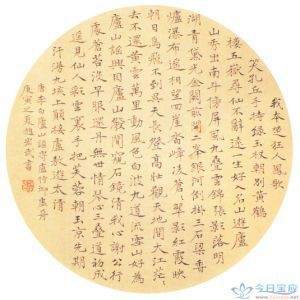 我本楚狂人鳳歌
笑孔丘手持綠玉杖朝別黃鶴
樓五嶽尋仙不辭遠一生好入名山遊廬
山秀出南斗傍屏風九疊雲錦張影落明
湖青黛光金闕前開二峯長銀河倒掛三石梁香
爐瀑布遙相望迴崖沓嶂凌蒼蒼翠影紅霞映
朝日鳥飛不到吳天長登高壯觀天地間大江茫茫
去不還黃雲萬里動風色白波九道流雪山好為
廬山謠興因廬山發閒窺石鏡清我心謝公行
處蒼苔沒早服還丹無世情琴心三疊道初成
遙見仙人彩雲裏手把芙蓉朝玉京先期
汗漫九垓上願接盧敖遊太清
唐李白廬山謠寄盧侍御虛舟
庚寅之夏趙
今日宝